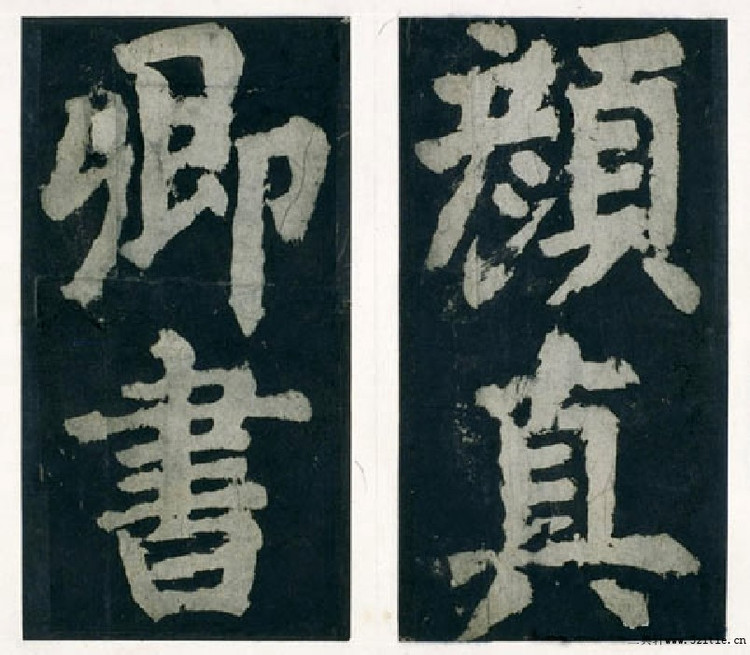 顏真
卿書
www.521tie.cn